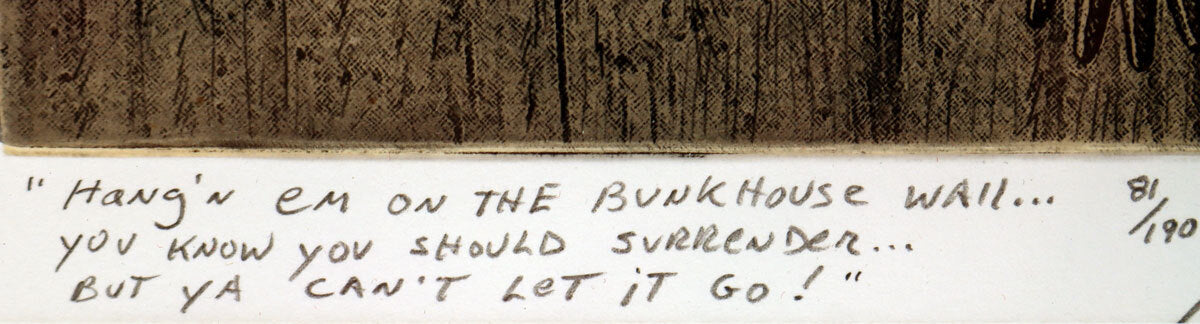 "Hang'n em on THE BUNKHOUSE WAll... 81/190
YOU KNOW YOU SHOULD SURRENDER...
BUT YA CAN'T LET iT GO!"